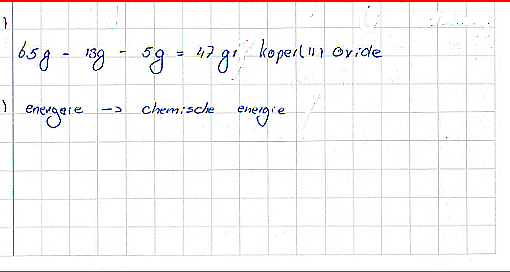 )
65g - 13g - 5g = 47 gr koper(II) oxide
) energeie -> chemische energie